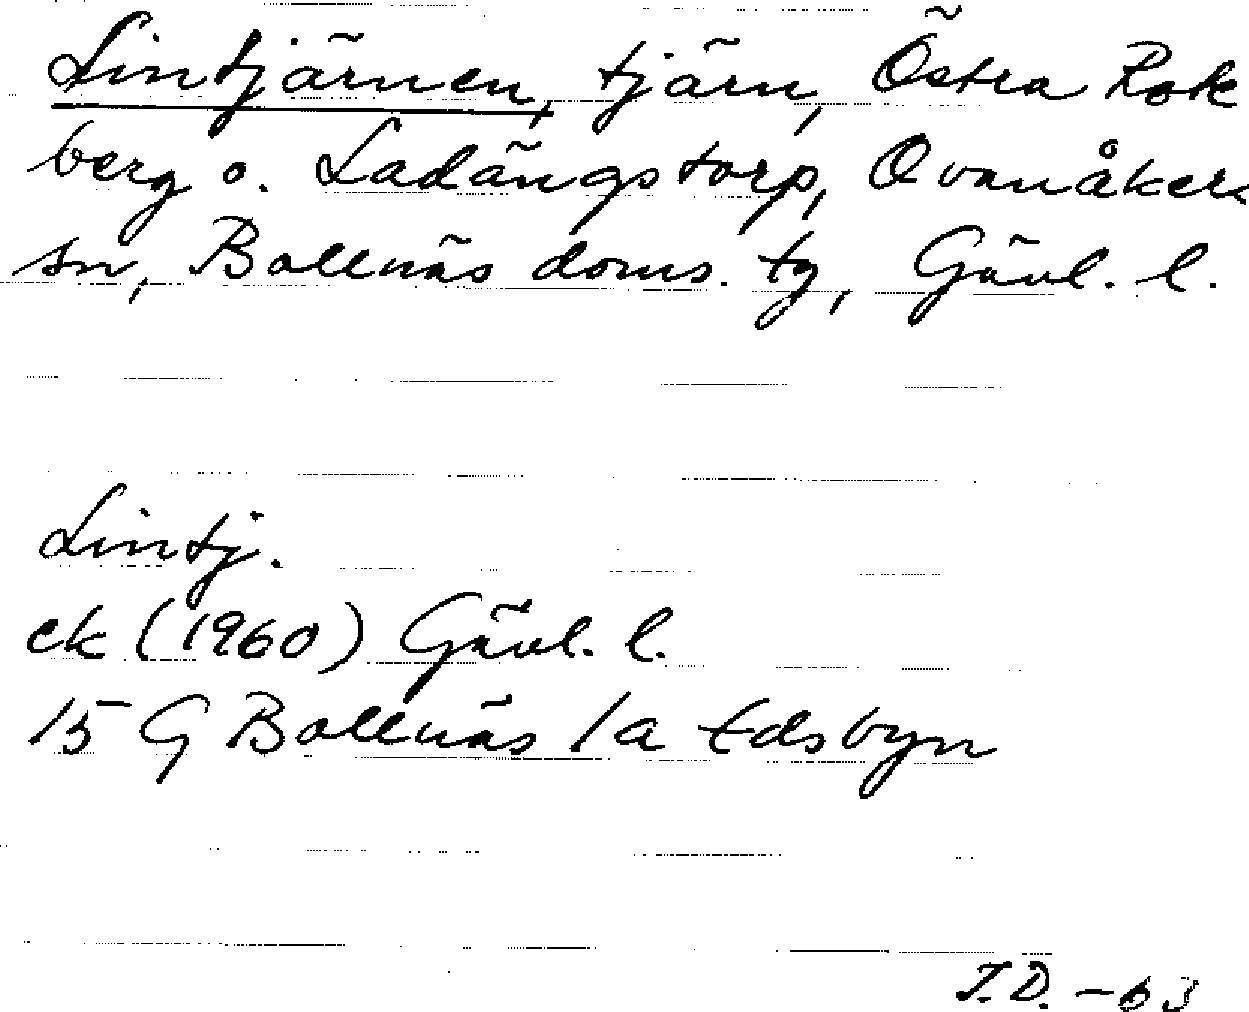 Lintjärnen, tjärn, Östra Rok
berg o. Ladängstorp, Ovanåkers
sn, Bollnäs doms. tg, Gävl. l.
Lintj.
ek (1960) Gävl. l.
15 G Bollnäs 1a Edsbyn
T.D. -63